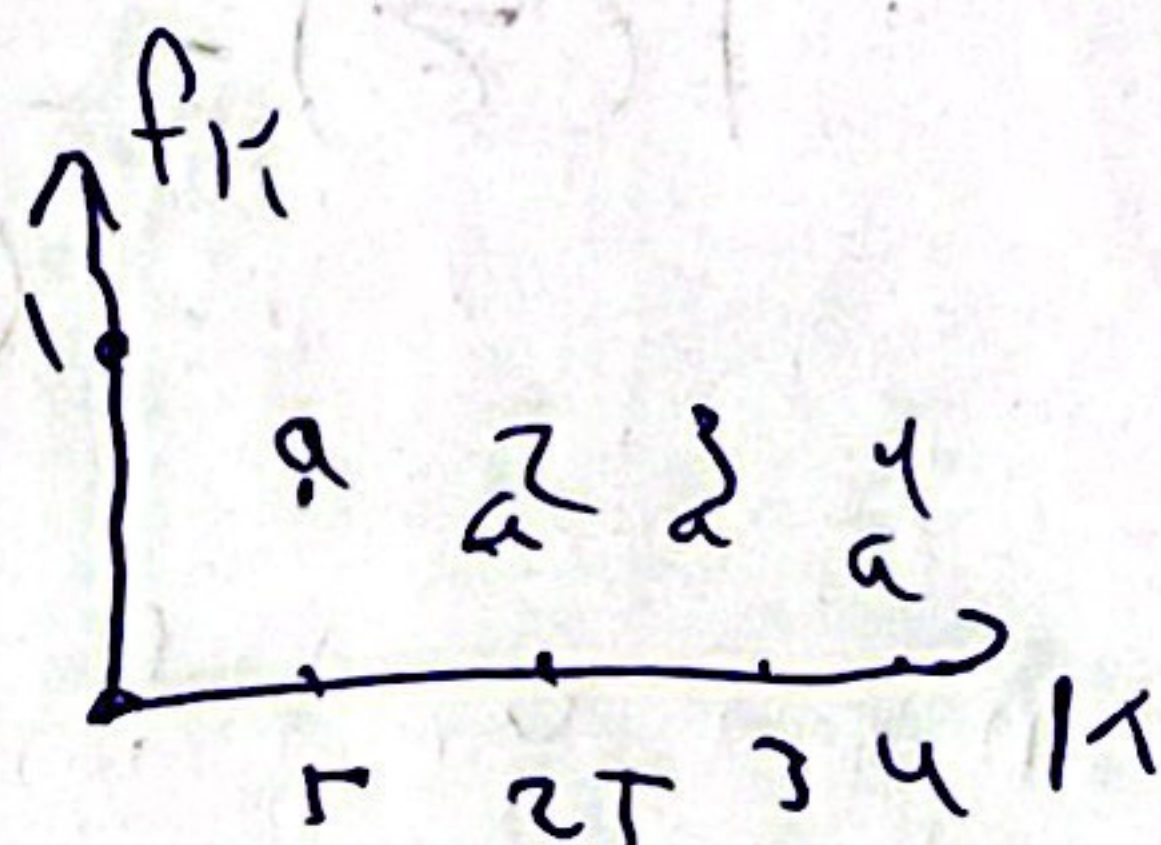 fk
1
a a² a³ a⁴
T 2T 3 4 k